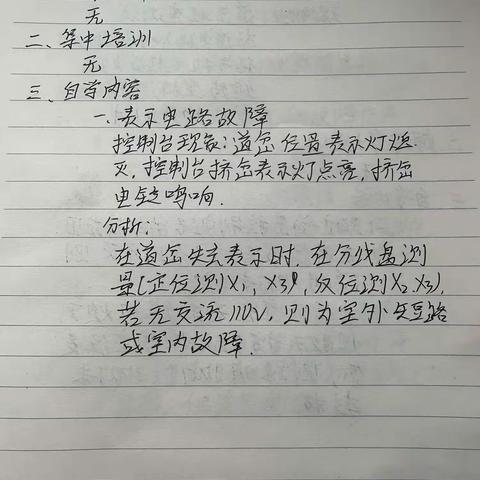 无
二、集中培训
无
三、自学内容
一、表示电路故障
控制台现象:道岔位置表示灯熄
灭,控制台挤岔表示灯点亮,挤岔
电铃鸣响.
分析:
在道岔失去表示时,在分线盘测
量(定位测X₁、X₃,反位测X₂、X₃),
若无交流110V,则为室外短路
或室内故障.